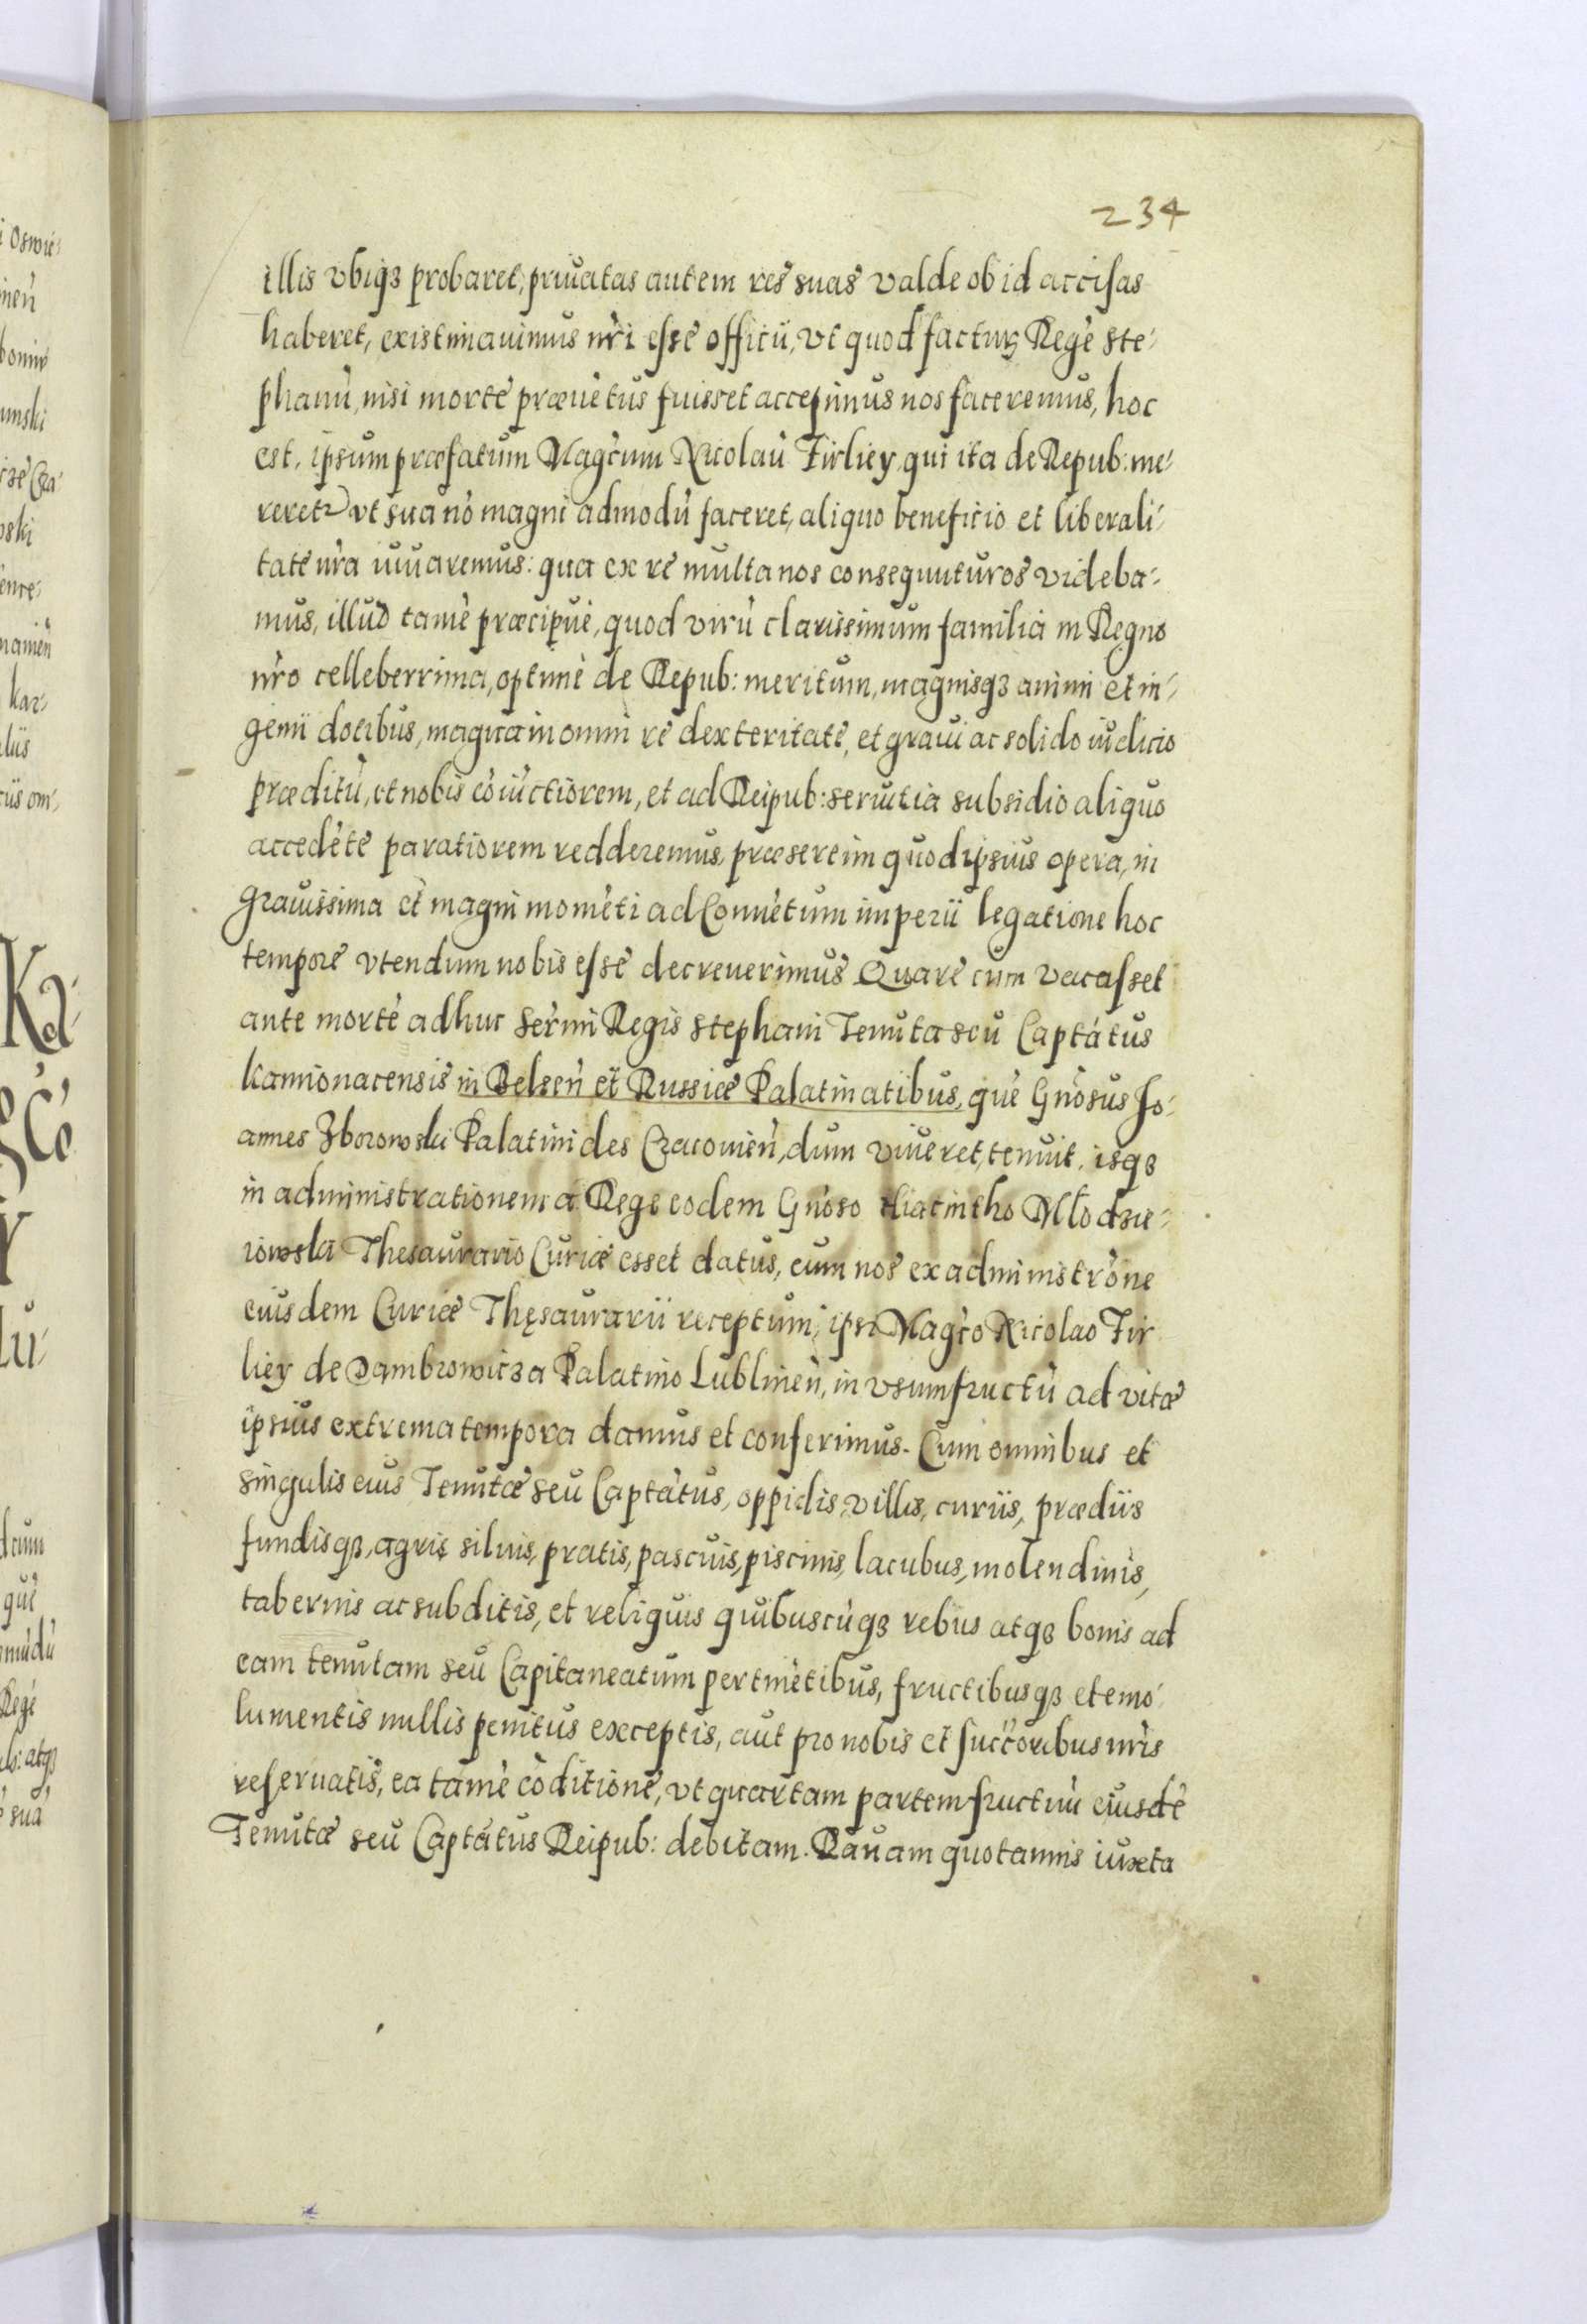 234
illis vbiqꝫ probaret, priuatas autem res suas valde ob id accisas
haberet, existimauimus nr̃i esse officii, vt quod factuꝝ Regẽ Ste-
phanũ, nisi mortẽ præuẽtus fuisset accepimus nos faceremus, hoc
est, ipsum præfatum Magc̃um Nicolaũ Firliey, qui ita de Repub: me-
reretꝛ vt sua nõ magni admodũ faceret, aliquo beneficio et liberali-
tate nr̃a iuuaremus: qua ex re multa nos consequuturos videba-
mus, illud tamẽ præcipue, quod virũ clarissimum familia in Regno
nr̃o celleberrima, optimè de Repub: meritum, magnisqꝫ animi et in-
genii dotibus, magna in omni re dexteritate, et graui ac solido iudicio
præditũ, et nobis cõiũctiorem, et ad Reipub: seruitia subsidio aliquo
accedẽte paratiorem redderemus, præsertim quod ipsius opera, in
grauissima et magni momẽti ad Conuẽtum imperii legatione hoc
tempore vtendum nobis esse decreuerimus Quare cum vacasset
ante mortẽ adhuc Serm̃i Regis Stephani Tenuta seu Captãtus
kamionacensis in Belseñ et Russiæ Palatinatibus, quẽ Gñosus Jo-
annes Zborowski Palatinides Cracovieñ, dum viueret, tenuit, isqꝫ
in administrationem a Rege eodem Gñoso Hiacintho Młodzie-
iowski Thesaurario Curiæ esset datus, eum nos ex administrõne
eiusdem Curiæ Thęsaurarii receptum, ipsi Magc̃o Nicolao Fir
liey de Dąmbrowicza Palatino Lublineñ, in vsumfructũ ad vitæ
ipsius extrema tempora damus et conferimus. Cum omnibus et
singulis eius Tenutæ seu Captãtus, oppidis, villis, curiis, prædiis
fundisqꝫ, agris siluis, pratis, pascuis, piscinis, lacubus, molendinis,
tabernis ac subditis, et reliquis quibuscũqꝫ rebus atqꝫ bonis ad
eam tenutam seu Capitaneatum pertinẽtibus, fructibusqꝫ et emo-
lumentis nullis penitus exceptis, aut pro nobis et succ̃oribus nr̃is
reseruatis, ea tamẽ cõditione, vt quartam partem fructuũ eiusdẽ
Tenutæ seu Captãtus Reipub: debitam. Rauam quotannis iuxta